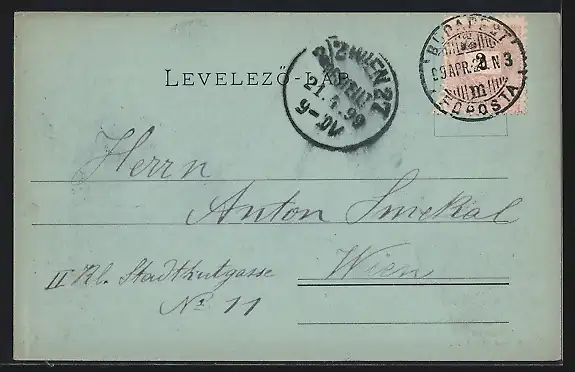 LEVELEZŐ-LAP
BUDAPEST
99 APR. 20. N 3
FŐPOSTA
2/2 WIEN 27
BESTELLT
21. 4. 99
Herrn
Anton Smekal
Wien
II Kl. Stadtgutgasse
No 11